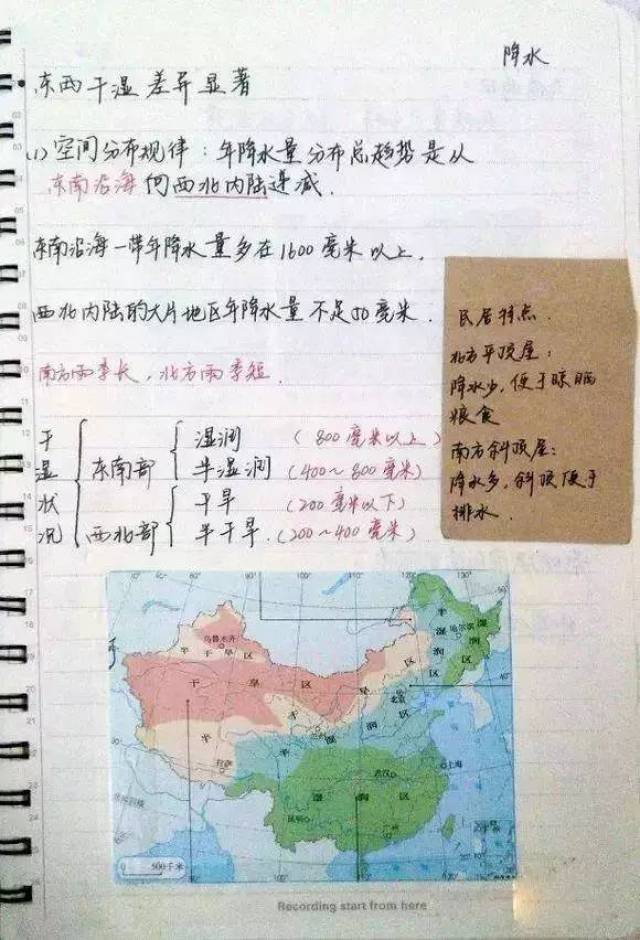 降水
东西干湿差异显著
(1) 空间分布规律：年降水量分布总趋势是从
东南沿海向西北内陆递减.
东南沿海一带年降水量多在1600毫米以上.
西北内陆的大片地区年降水量不足50毫米.
南方雨季长，北方雨季短.
民居特点.
北方平顶屋：
降水少，便于晾晒
粮食
南方斜顶屋：
降水多，斜顶便于
排水.
干湿状况
东南部
湿润 (800毫米以上)
半湿润 (400~800毫米)
西北部
干旱 (200毫米以下)
半干旱. (200~400毫米)
乌鲁木齐
半干旱区
干旱区
半湿润区
哈尔滨
湿润区
北京
半湿润区
拉萨
武汉
上海
湿润区
昆明
500千米
Recording start from here